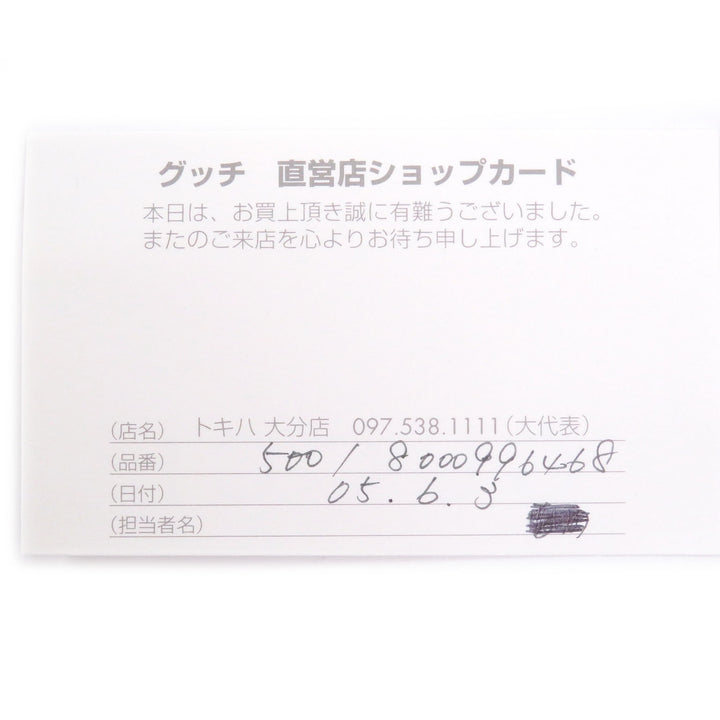 グッチ　直営店ショップカード
本日は、お買上頂き誠に有難うございました。
またのご来店を心よりお待ち申し上げます。
(店名)　トキハ 大分店　097.538.1111(大代表)
(品番)　500 / 8000996468
(日付)　05.6.3
(担当者名)